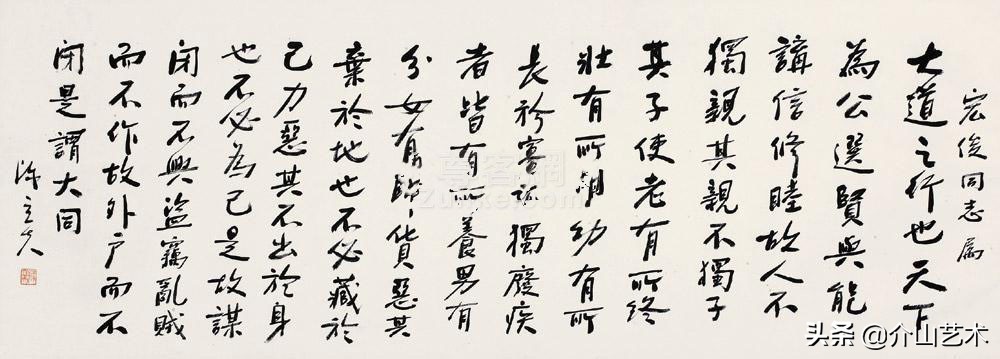 宏俊同志属
大道之行也天下
為公選賢與能
講信修睦故人不
獨親其親不獨子
其子使老有所終
壯有所用幼有所
長矜寡孤獨廢疾
者皆有所養男有
分女有歸貨惡其
棄於地也不必藏於
己力惡其不出於身
也不必為己是故謀
闭而不興盜竊亂賊
而不作故外户而不
闭是謂大同
陈立夫
尊客網
Zunke.net
头条 @介山艺术